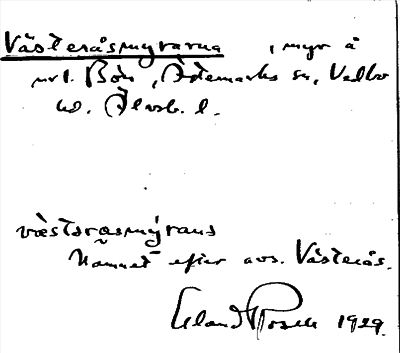 Västeråsmyrarna , myr å
utl. Bön , Ödemarks sn, Vedbo
hd. Älvsb. l.
væstsrasmýrans
Namnet efter avs. Västerås.
Erland Rosell 1929.